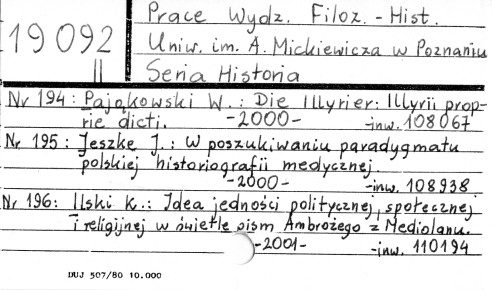 19 092
II
Prace Wydz. Filoz. - Hist.
Uniw. im. A. Mickiewicza w Poznaniu
Seria Historia
Nr 194: Pająkowski W.: Die Illyrier: Illyrii prop-
rie dicti. -2000- -inw. 108067
Nr 195: Jeszke J.: W poszukiwaniu paradygmatu
polskiej historiografii medycznej.
-2000- -inw. 108938
Nr 196: Ilski K.: Idea jedności politycznej, społecznej
i religijnej w świetle pism Ambrożego z Mediolanu.
-2001- -inw. 110194
DUJ 507/80 10.000